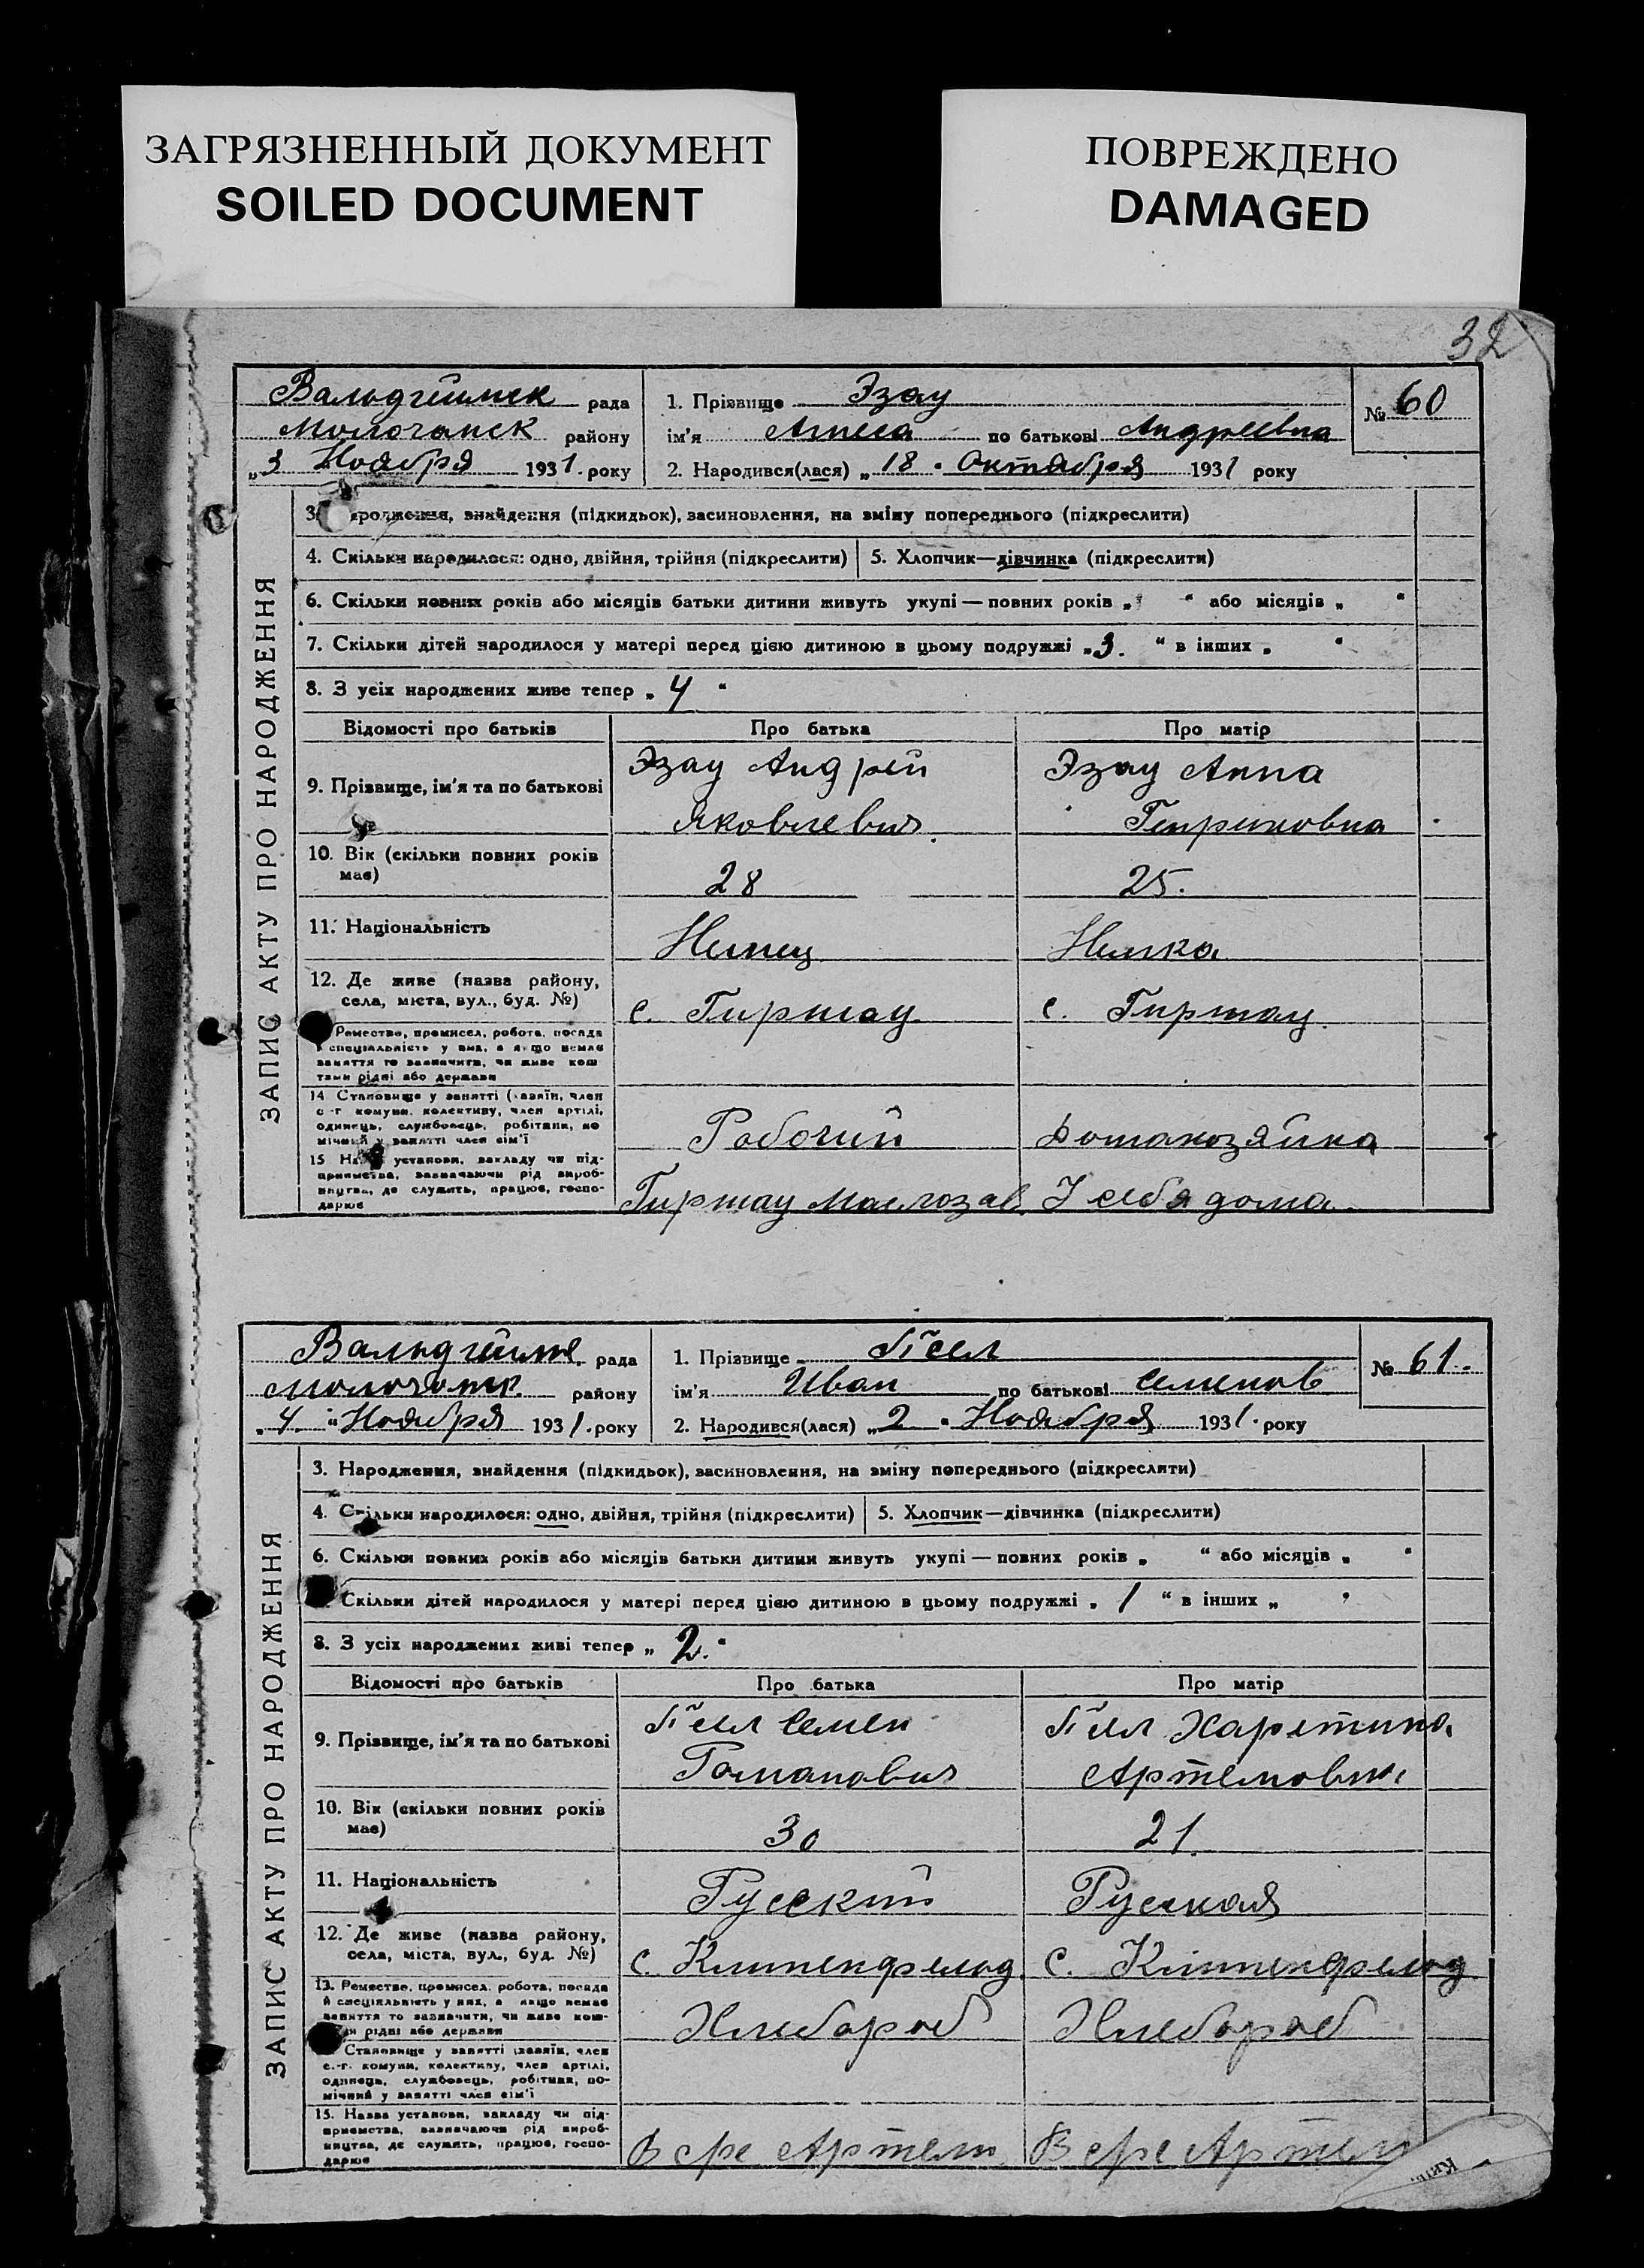 ЗАГРЯЗНЕННЫЙ ДОКУМЕНТ
SOILED DOCUMENT
ПОВРЕЖДЕНО
DAMAGED
32
Вальдгеймск рада
Молочанск району
„3 Ноября 1931. року
1. Прізвище Эзау
ім'я Агнеса по батькові Андреевна
2. Народився(лася) „18 " Октября 1931 року
№ 60
ЗАПИС АКТУ ПРО НАРОДЖЕННЯ
3. народження, знайдення (підкидьок), засиновлення, на зміну попереднього (підкреслити)
4. Скільки народилося: одно, двійня, трійня (підкреслити) 5. Хлопчик—дівчинка (підкреслити)
6. Скільки повних років або місяців батьки дитини живуть укупі — повних років „ " або місяців „ "
7. Скільки дітей народилося у матері перед цією дитиною в цьому подружжі „3. " в інших „ "
8. З усіх народжених живе тепер „ 4 "
Відомості про батьків Про батька Про матір
9. Прізвище, ім'я та по батькові
Эзау Андрей
Яковлевич
Эзау Анна
Генриховна
10. Вік (скільки повних років має)
28 25.
11. Національність
Немец Немка
12. Де живе (назва району,
села, міста, вул., буд. №)
с. Гиршау с. Гиршау
Ремество, промисел, робота, посада
й спеціяльність у них, а якщо немає
заняття то зазначити, чи живе кош
тами рідні або держави
14 Становище у занятті (хазяїн, член
с-г комуни, колективу, член артілі,
одинець, службовець, робітник, по
мічний у занятті член сім'ї
Робочий Домахозяйка
15 Назва установи, закладу чи під-
приємства, зазначаючи рід вироб-
ництва, де служить, працює, госпо-
дарює
Гиршау маслозав. У себя дома
Вальдгейм. рада
Молочанск. району
„4. " Ноября 1931. року
1. Прізвище Гісел
ім'я Иван по батькові Семенов
2. Народився(лася) „2 " Ноября 1931. року
№ 61.
ЗАПИС АКТУ ПРО НАРОДЖЕННЯ
3. Народження, знайдення (підкидьок), засиновлення, на зміну попереднього (підкреслити)
4. Скільки народилося: одно, двійня, трійня (підкреслити) 5. Хлопчик—дівчинка (підкреслити)
6. Скільки повних років або місяців батьки дитини живуть укупі — повних років „ " або місяців „ "
Скільки дітей народилося у матері перед цією дитиною в цьому подружжі „ 1 " в інших „ "
8. З усіх народжених живі тепер „ 2. "
Відомості про батьків Про батька Про матір
9. Прізвище, ім'я та по батькові
Семен
Романович
Харетина
Артемовна
10. Вік (скільки повних років має)
30 21.
11. Національність
Русский Русская
12. Де живе (назва району,
села, міста, вул., буд. №)
с. Клипенфельд с. Клипенфельд
13. Ремество, промисел, робота, посада
й спеціяльність у них, а якщо немає
заняття то зазначити, чи живе кош-
тами рідні або держави
Хлебороб Хлебороб
Становище у занятті (хазяїн, член
с.-г. комуни, колективу, член артілі,
одинець, службовець, робітник, по-
мічний у занятті член сім'ї
15. Назва установи, закладу чи під-
приємства, зазначаючи рід вироб-
ництва, де служить, працює, госпо-
дарює
В Артели В Артели